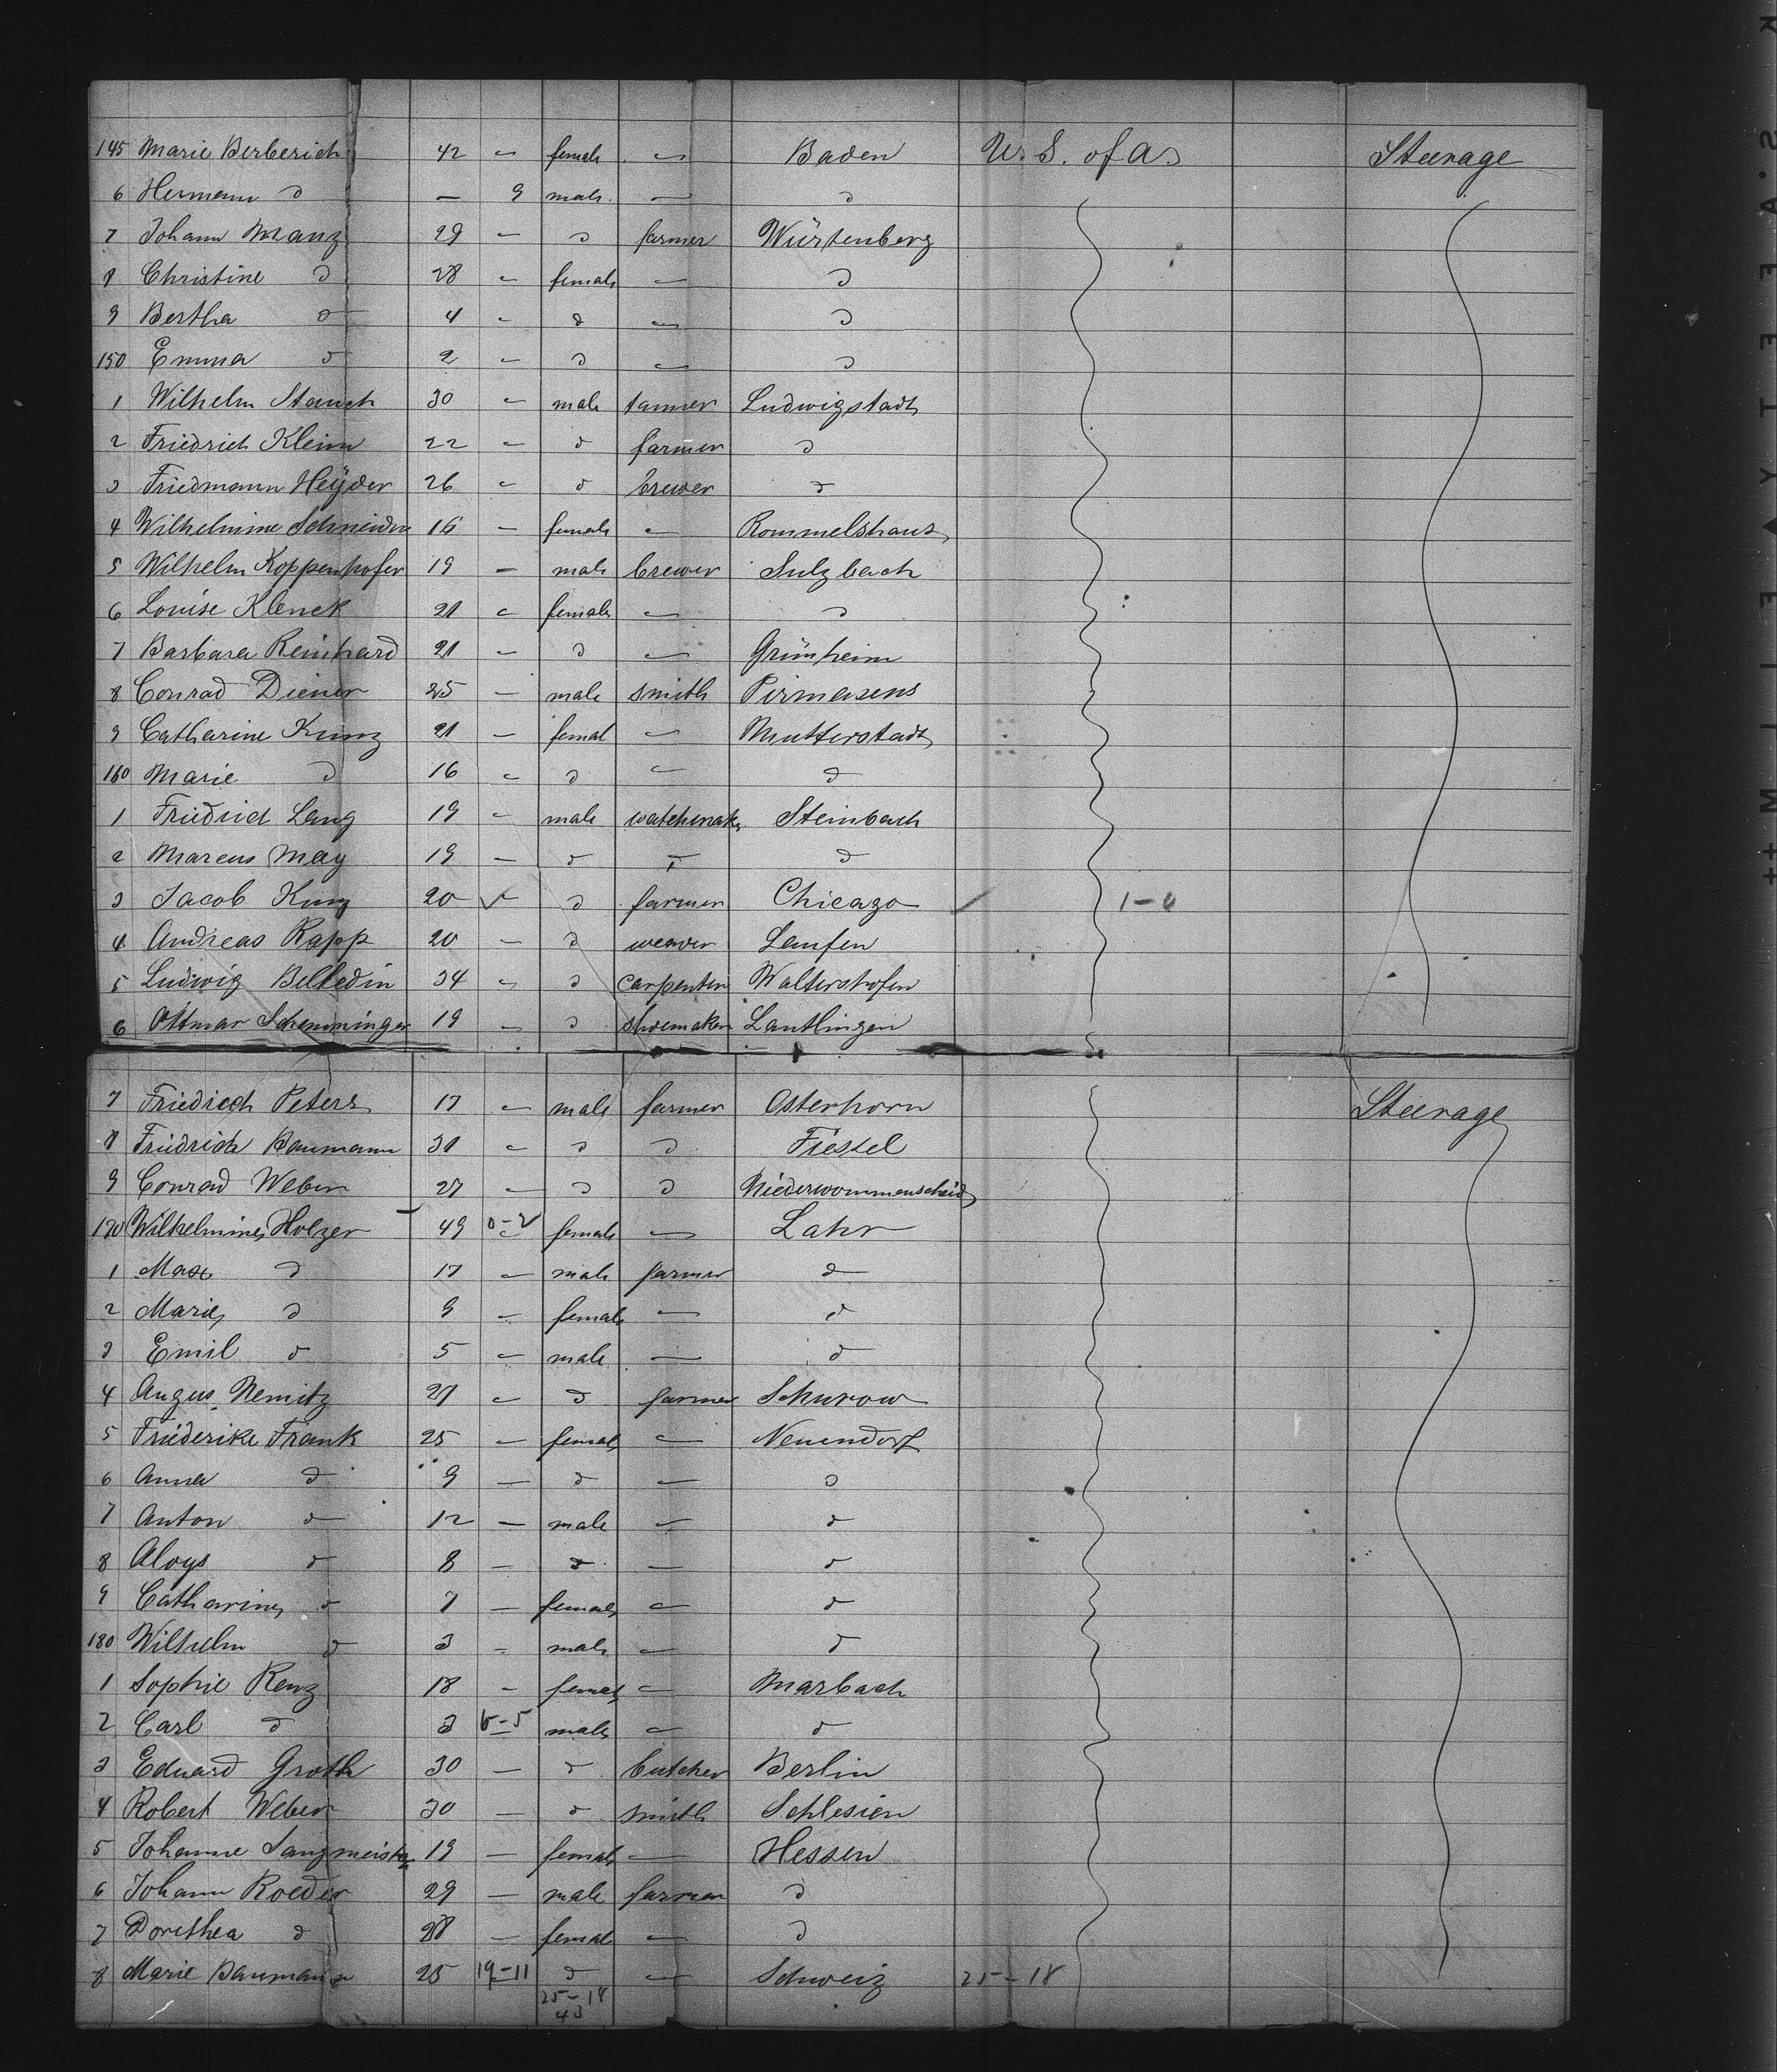 145 Marie Berberich 42 — female — Baden U. S. of A. Steerage
6 Hermann do — 9 male — do
7 Johann Manz 29 — do farmer Würtenberg
8 Christine do 28 — female — do
9 Bertha do 4 — do — do
150 Emma do 2 — do — do
1 Wilhelm Stauch 30 — male tanner Ludwigstadt
2 Friedrich Kleim 22 — do farmer do
3 Friedmann Heÿder 26 — do brewer do
4 Wilhelmine Schneider 16 — female — Rommelshaus
5 Wilhelm Koppenhofer 19 — male brewer Sulzbach
6 Louise Klenek 21 — female — do
7 Barbara Reinhard 21 — do — Grünheim
8 Conrad Diener 25 — male smith Pirmasens
9 Catharine Kunz 21 — femal — Mutterstadt
160 Marie do 16 — do — do
1 Friedrich Lang 19 — male watchmaker Steinbach
2 Marcus May 19 — do — do
3 Jacob Kunz 20 do farmer Chicago 1-0
4 Andreas Rapp 20 — do weaver Laufen
5 Ludwig Belledin 34 — do carpenter Waltershofen
6 Ottmar Schemminger 19 — do shoemaker Lautlingen
7 Friedrich Peters 17 — male farmer Osterhorn Steerage
8 Friedrich Baumann 31 — do do Fiestel
9 Conrad Weber 27 — do do Niederwommenscheid
170 Wilhelmine Holzer 49 0-2 female — Lahr
1 Max do 17 — male farmer do
2 Marie do 9 — female — do
3 Emil do 5 — male — do
4 Augus. Nemitz 27 — do farmer Schurow
5 Friederike Frank 25 — female — Neuendorf
6 Anna do 9 — do — do
7 Anton do 12 — male — do
8 Aloys do 8 — do — do
9 Catharine do 7 — female — do
180 Wilhelm do 3 — male — do
1 Sophie Renz 18 — female — Marbach
2 Carl do 3 6-5 male — do
3 Eduard Groth 30 — do butcher Berlin
4 Robert Weber 30 — do smith Schlesien
5 Johanne Sangmeister 19 — female — Hessen
6 Johann Roeder 29 — male farmer do
7 Dorethea do 28 — female — do
8 Marie Baumann 25 19-11 do — Schweiz 25-18
25-18
43